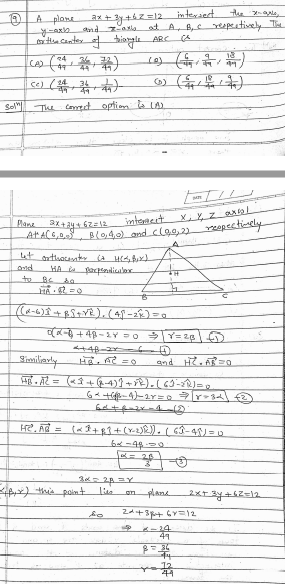 9 A plane 2x+3y+6z=12 intersect the x-axis,
y-axis and z-axis at A, B, C respectively The
orthocenter of triangle ABC is
(A) (24/49, 36/49, 72/49) (B) (6/49, 9/49, 18/49)
(C) (24/49, 36/49, 1/49) (D) (6/49, 18/49, 9/49)
Solⁿ) The correct option is (A)
Plane 2x+3y+6z=12 intersect X, Y, Z axis
At A(6,0,0), B(0,4,0) and C(0,0,2) respectively
Let orthocenter is H(α,β,γ)
and HA is perpendicular
to BC so
HA·BC=0
A
H
B
C
((α-6)î+βĵ+γk̂)·(4ĵ-2k̂)=0
4β-2γ=0 ⇒ γ=2β ①
Similiarly HB·AC=0 and HC·AB=0
HB·AC=(αî+(β-4)ĵ+γk̂)·(6î-2k̂)=0
-2γ=0 ⇒ γ=3α ②
HC·AB=(αî+βĵ+(γ-2)k̂)·(6î-4ĵ)=0
6α-4β=0
α=2β/3 ③
3α=2β=γ
(α,β,γ) this point lies on plane 2x+3y+6z=12
so 2α+3β+6γ=12
⇒ α=24/49
β=36/49
γ=72/49